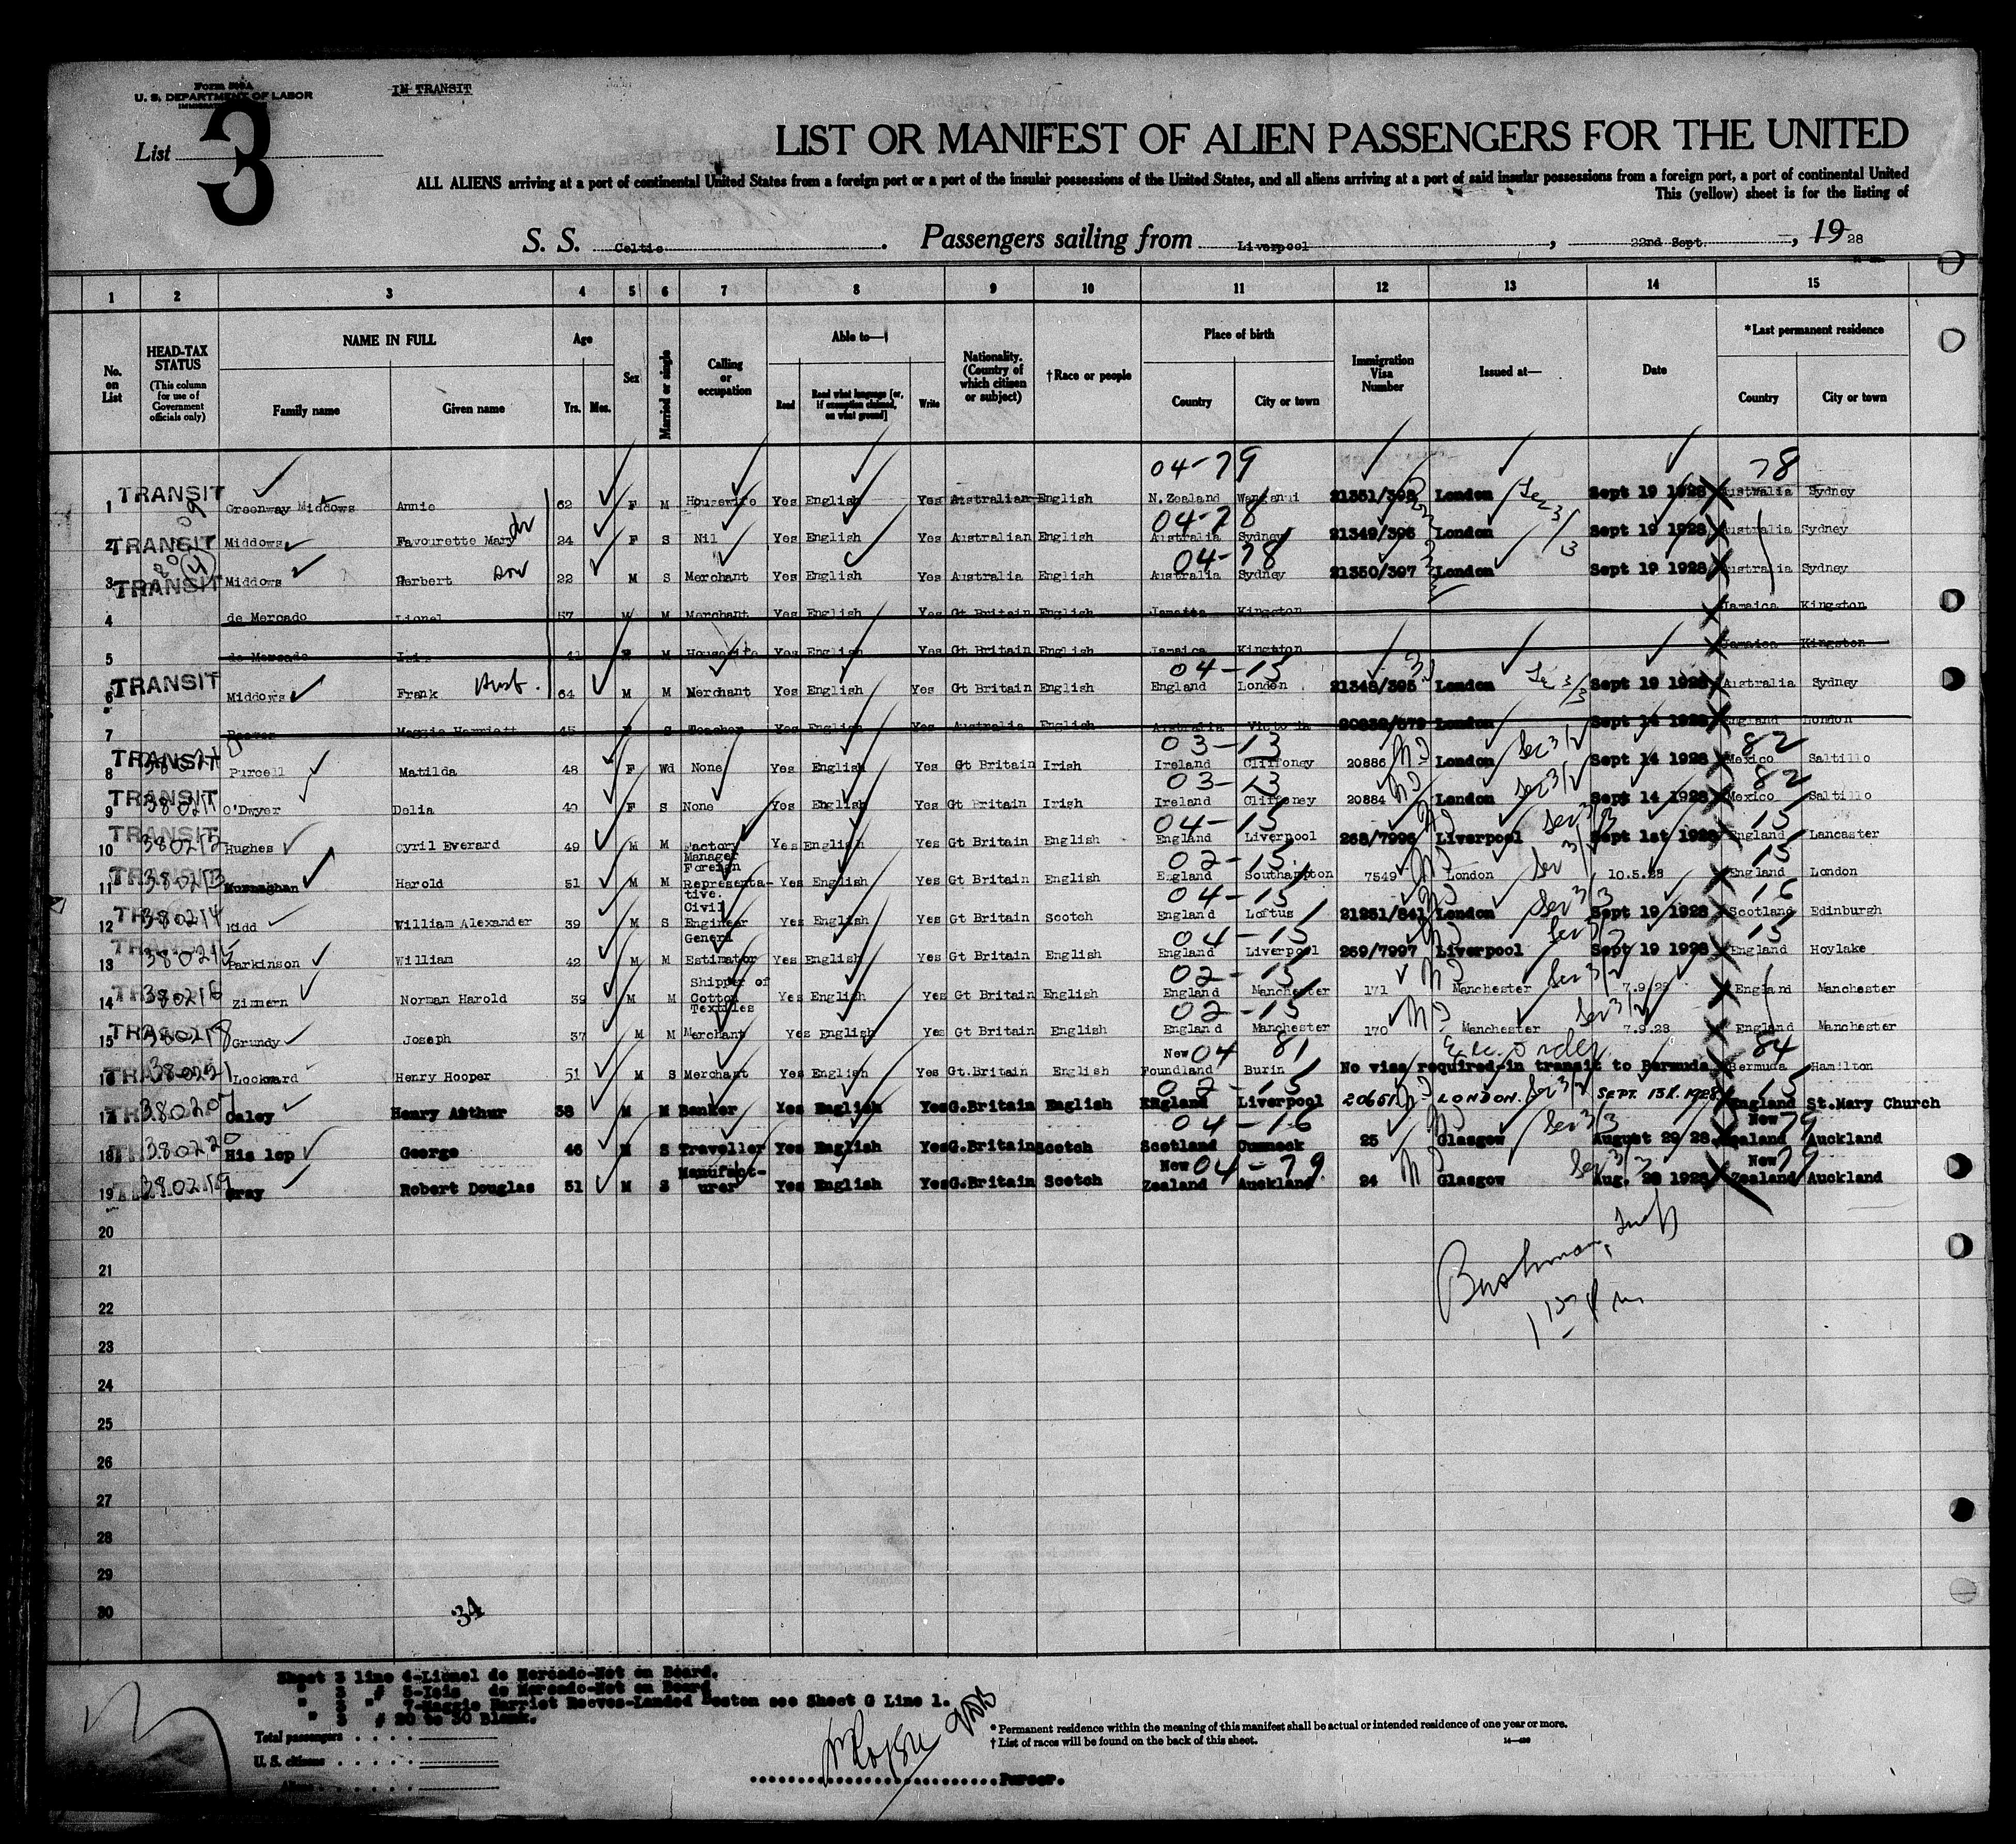 Form 500A
U. S. DEPARTMENT OF LABOR
IN TRANSIT
List 3
LIST OR MANIFEST OF ALIEN PASSENGERS FOR THE UNITED
ALL ALIENS arriving at a port of continental United States from a foreign port or a port of the insular possessions of the United States, and all aliens arriving at a port of said insular possessions from a foreign port, a port of continental United
This (yellow) sheet is for the listing of
S. S. Celtic. Passengers sailing from Liverpool, 22nd Sept., 1928
1 2 3 4 5 6 7 8 9 10 11 12 13 14 15
No. on List
HEAD-TAX STATUS (This column for use of Government officials only)
NAME IN FULL Family name Given name
Age Yrs. Mos.
Sex
Married or single
Calling or occupation
Able to— Read Read what language [or, if exemption claimed, on what ground] Write
Nationality. (Country of which citizen or subject)
†Race or people
Place of birth Country City or town
Immigration Visa Number
Issued at—
Date
*Last permanent residence Country City or town
04-79 78
1 TRANSIT Greenway Middows Annie 62 F M Housewife Yes English Yes Australian English N. Zealand Wanganui 21351/398 London Sept 19 1928 Australia Sydney
04-78
2 TRANSIT Middows Favourette Mary 24 F S Nil Yes English Yes Australian English Australia Sydney 21349/396 London Sept 19 1928 Australia Sydney
04-78
3 TRANSIT Middows Herbert son 22 M S Merchant Yes English Yes Australia English Australia Sydney 21350/397 London Sept 19 1928 Australia Sydney
4 de Mercado Lionel 57 M M Merchant Yes English Yes Gt Britain English Jamaica Kingston Jamaica Kingston
5 de Mercado 41 F M Housewife Yes English Yes Gt Britain English Jamaica Kingston Jamaica Kingston
04-15
6 TRANSIT Middows Frank Husb. 64 M M Merchant Yes English Yes Gt Britain English England London 21348/395 London Sept 19 1928 Australia Sydney
7 Reeves Maggie Harriett 45 F S Teacher Yes English Yes Australia English Australia Victoria 20832/379 London Sept 14 1928 England London
03-13 82
8 TRANSIT Purcell Matilda 48 F Wd None Yes English Yes Gt Britain Irish Ireland Cliffoney 20886 London Sec 3/2 Sept 14 1928 Mexico Saltillo
03-13 82
9 TRANSIT 380211 O'Dwyer Delia 40 F S None Yes English Yes Gt Britain Irish Ireland Cliffoney 20884 London Sec 3/2 Sept 14 1928 Mexico Saltillo
04-15 15
10 TRANSIT 380212 Hughes Cyril Everard 49 M M Factory Manager Yes English Yes Gt Britain English England Liverpool 268/7996 Liverpool Sec 3/3 Sept 1st 1928 England Lancaster
02-15 15
11 TRANSIT 380213 Murnaghan Harold 51 M M Foreign Representative. Yes English Yes Gt Britain English England Southampton 7549 London 10.5.28 England London
04-15 16
12 380214 Kidd William Alexander 39 M S Civil Engineer Yes English Yes Gt Britain Scotch England Loftus 21251/841 London Sec 3/3 Sept 19 1928 Scotland Edinburgh
04-15 15
13 TRANSIT 380215 Parkinson William 42 M M Generl Estimator Yes English Yes Gt Britain English England Liverpool 269/7997 Liverpool Sept 19 1928 England Hoylake
02-15
14 TRANSIT 380216 Zimmern Norman Harold 39 M M Shipper of Cotton Textiles Yes English Yes Gt Britain English England Manchester 171 Manchester Sec 3/2 7.9.28 England Manchester
02-15
15 TRANSIT 380218 Grundy Joseph 37 M M Merchant Yes English Yes Gt Britain English England Manchester 170 Manchester Sec 3/2 7.9.28 England Manchester
04 81 Ex. order 84
16 TRANSIT 380221 Lockward Henry Hooper 51 M S Merchant Yes English Yes Gt.Britain English New Foundland Burin No visa required-in transit to Bermuda Bermuda Hamilton
02-15 15
17 380207 Caley Henry Arthur 38 M M Banker Yes English Yes G.Britain English England Liverpool 20651 LONDON. Sec 3/2 SEPT. 13th. 1928 England St.Mary Church
04-16 79
18 380220 His lop George 46 M S Traveller Yes English Yes G.Britain Scotch Scotland Cumnock 25 Glasgow Sec 3/3 August 29 28. New Zealand Auckland
04-79 79
19 380219 Gray Robert Douglas 51 M S Manufact-urer Yes English Yes G.Britain Scotch New Zealand Auckland 24 Glasgow Aug. 29 1928 New Zealand Auckland
20
21
22
23
24
25
26
27
28
29
30
Bushman, Insp
34
Sheet 3 line 4-Lionel de Mercado-Not on Board.
" 3 " 5-Iois de Mercado-Not on Board
" 3 " 7-Maggie Harriet Reeves-Landed Boston see Sheet G Line 1.
" 3 " 20 to 30 Blank.
Total passengers
U. S. citizens
Aliens
Purser.
* Permanent residence within the meaning of this manifest shall be actual or intended residence of one year or more.
† List of races will be found on the back of this sheet.